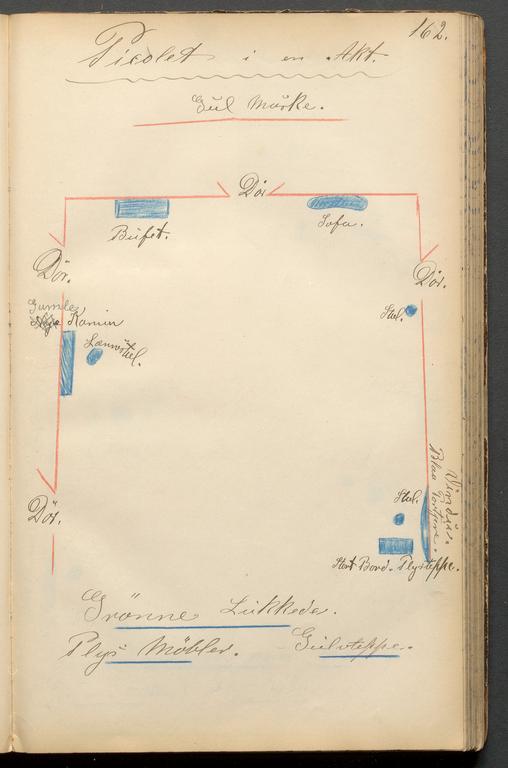 162.
Picolet i en Akt.
Gul Maske.
Dör
Büfet.
Sofa.
Dör.
Dör.
Gamle
Kamin
Lænestol.
Stol.
Vindue.
Blaa Portiere.
Stol.
Dör.
Stort Bord - Plysteppe.
Grönne Lukkede.
Plys Möbler. - Gulvteppe.